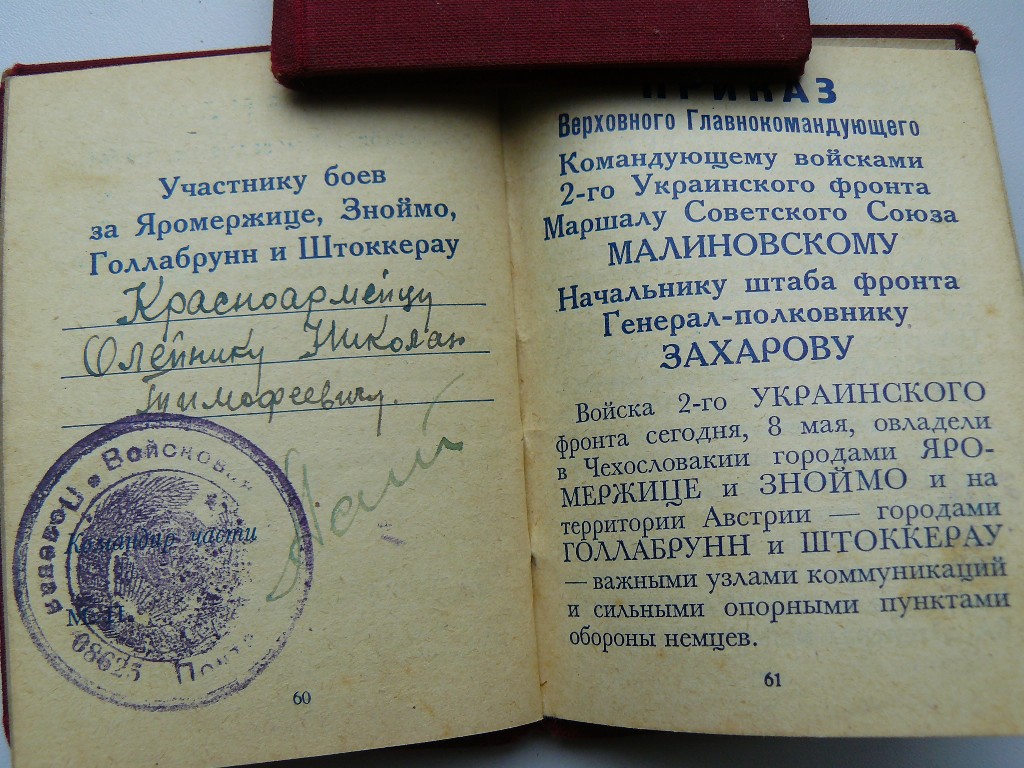 Участнику боев
за Яромержице, Зноймо,
Голлабрунн и Штоккерау
Красноармейцу
Олейнику Николаю
Тимофеевичу.
Командир части
М. П.
Полевая Почта
Войсковая
08625
60
ПРИКАЗ
Верховного Главнокомандующего
Командующему войсками
2-го Украинского фронта
Маршалу Советского Союза
МАЛИНОВСКОМУ
Начальнику штаба фронта
Генерал-полковнику
ЗАХАРОВУ
Войска 2-го УКРАИНСКОГО
фронта сегодня, 8 мая, овладели
в Чехословакии городами ЯРО-
МЕРЖИЦЕ и ЗНОЙМО и на
территории Австрии — городами
ГОЛЛАБРУНН и ШТОККЕРАУ
— важными узлами коммуникаций
и сильными опорными пунктами
обороны немцев.
61